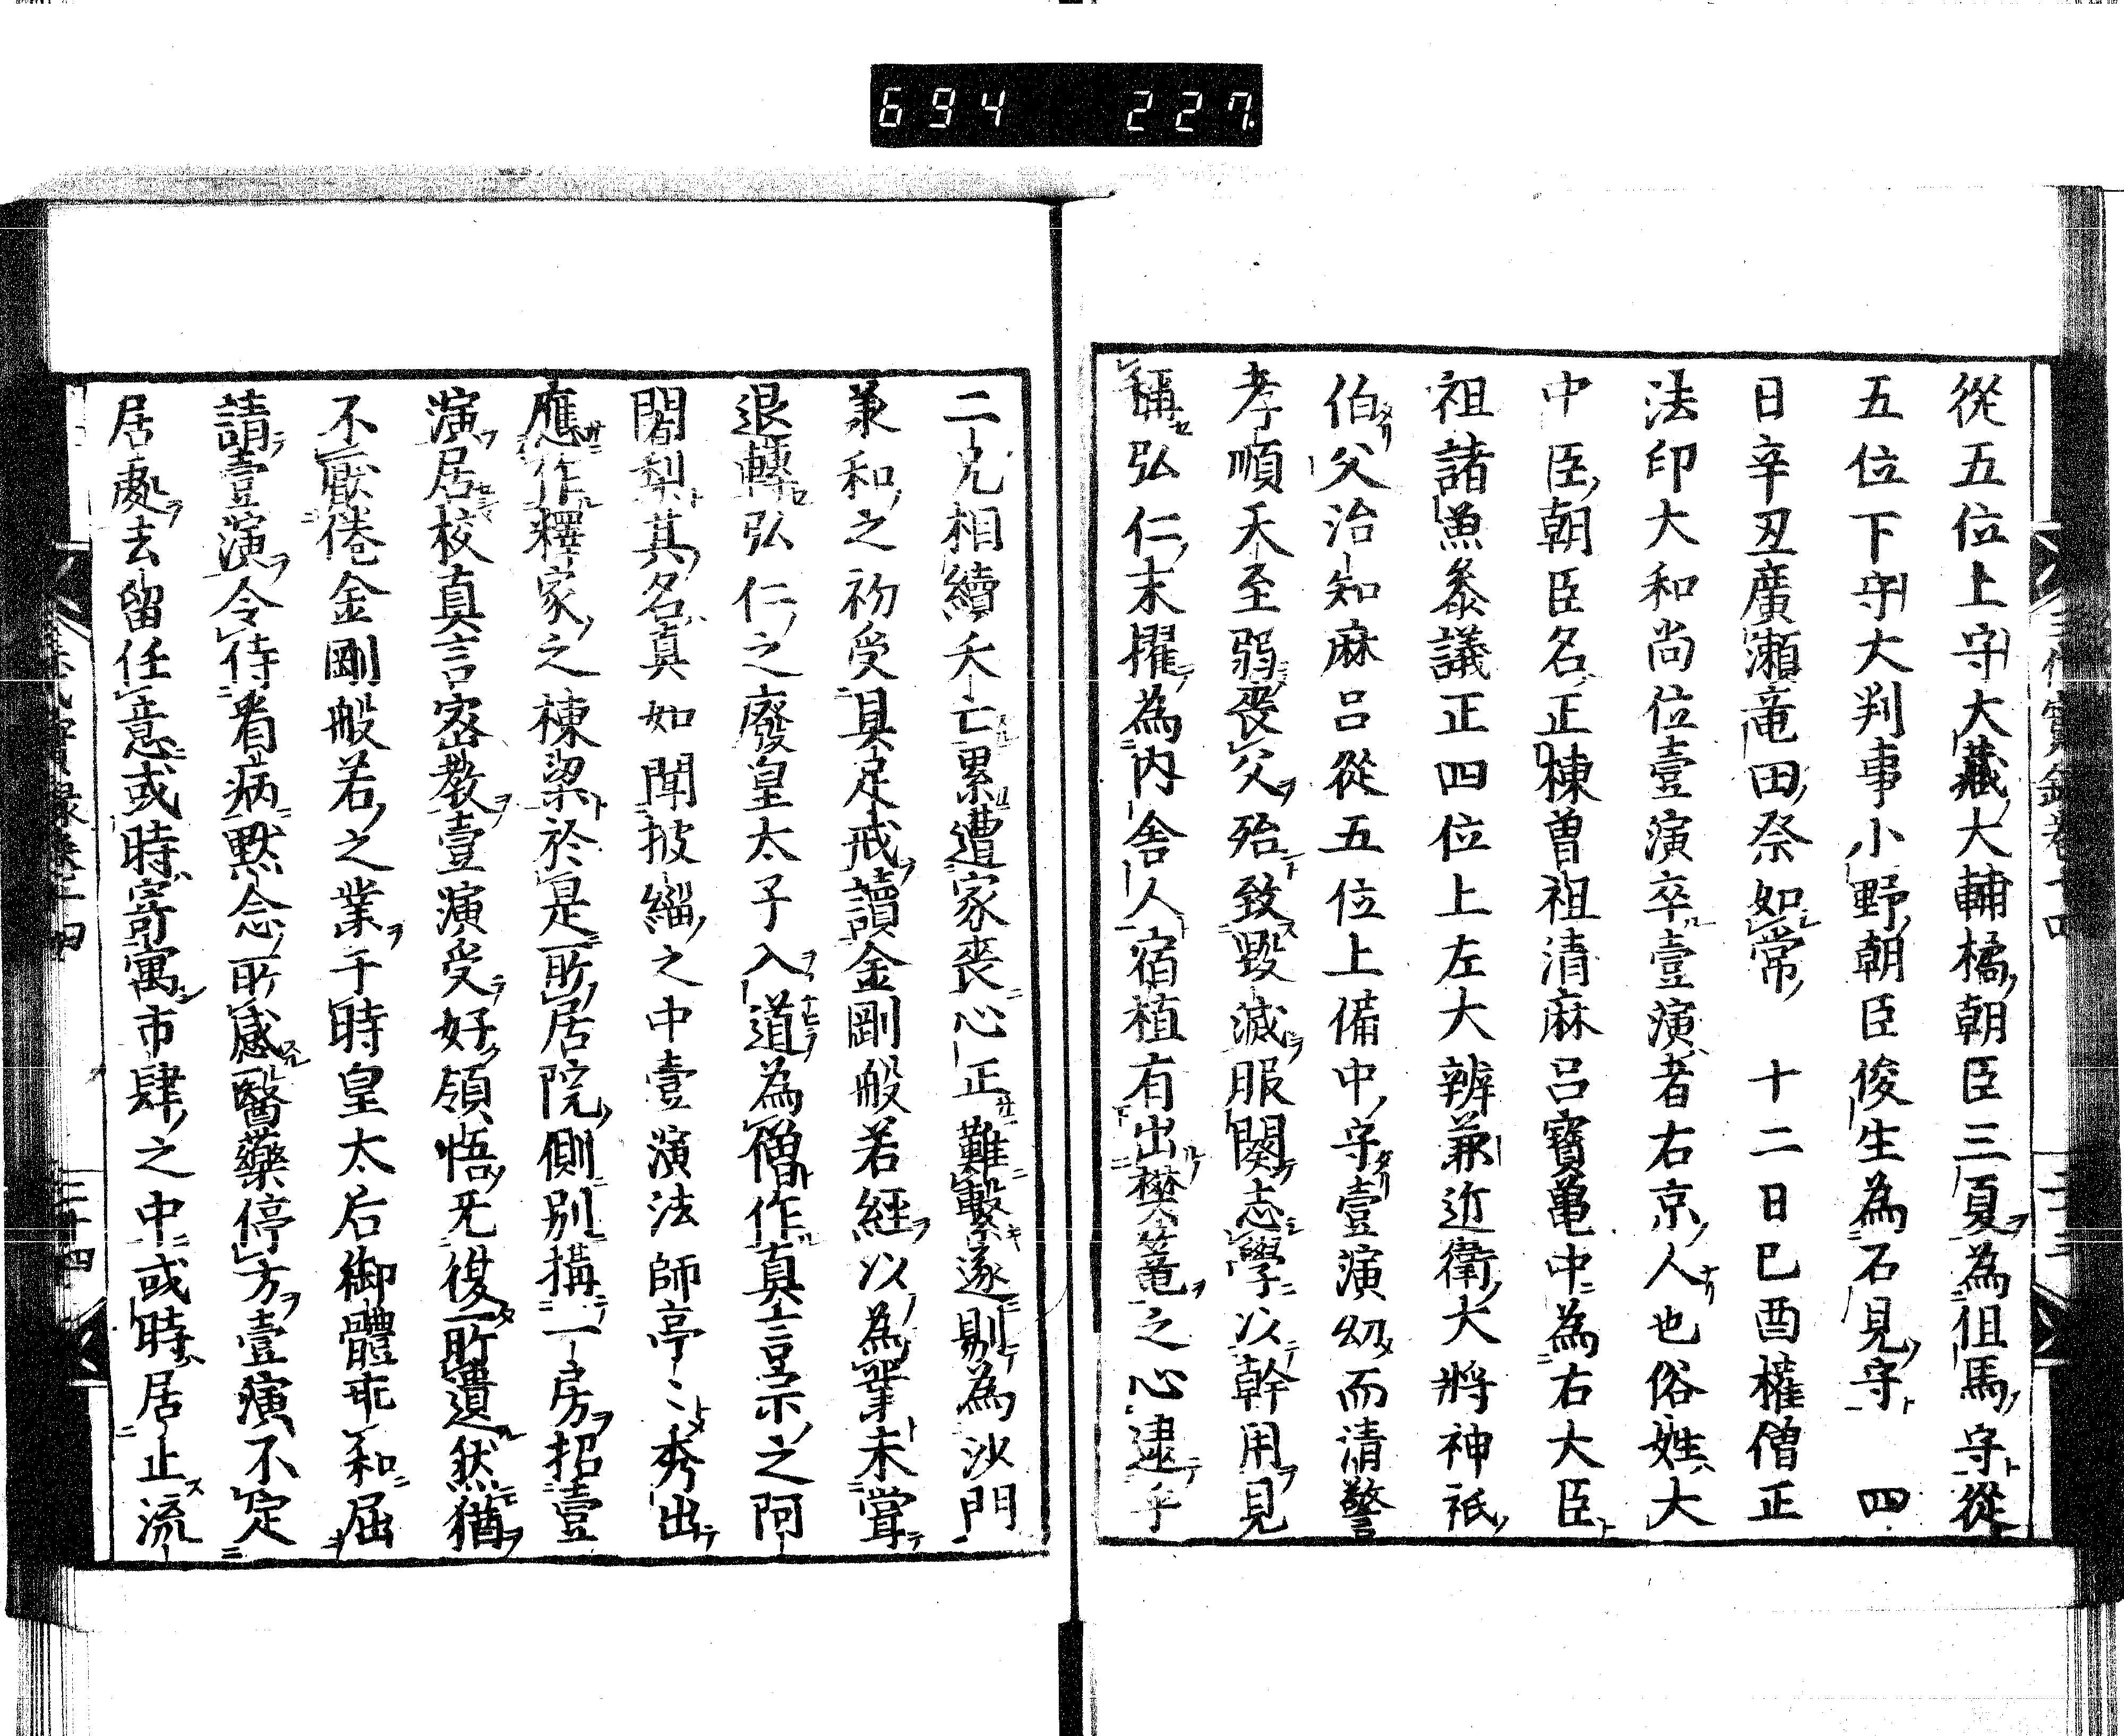 694 227
從五位上守大藏大輔橘朝臣三夏為伹馬守從
五位下守大判事小野朝臣俊生為石見守 四
日辛丑廣瀬竜田祭如常 十二日巳酉權僧正
法印大和尚位壹演卒壹演者右京人也俗姓大
中臣朝臣名正棟曽祖清麻呂寳亀中為右大臣
祖諸魚叅議正四位上左大辨兼近衛大將神祇
伯父治知麻呂從五位上備中守壹演㓜而清警
孝順天至弱喪父殆致毀滅服闋志學以幹用見
稱弘仁末擢為内舎人宿植有出樊篭之心逮乎
二兄相續夭亡累遭家喪心正難繫遂剔為沙門
兼和之初受具足戒讀金剛般若經以為業未甞
退轉弘仁之廢皇太子入道為僧作真言宗之阿
闍梨其名真如聞披緇之中壹演法師亭〻秀出
應作釋家之棟梁於是所居院側別搆一房招壹
演居校真言密教壹演受好領悟旡復所遺然猶
不猒倦金剛般若之業于時皇太后御體乖和屈
請壹演令侍看病黙念所感醫藥停方壹演不定
居處去留任意或時寄寓市肆之中或時居止流